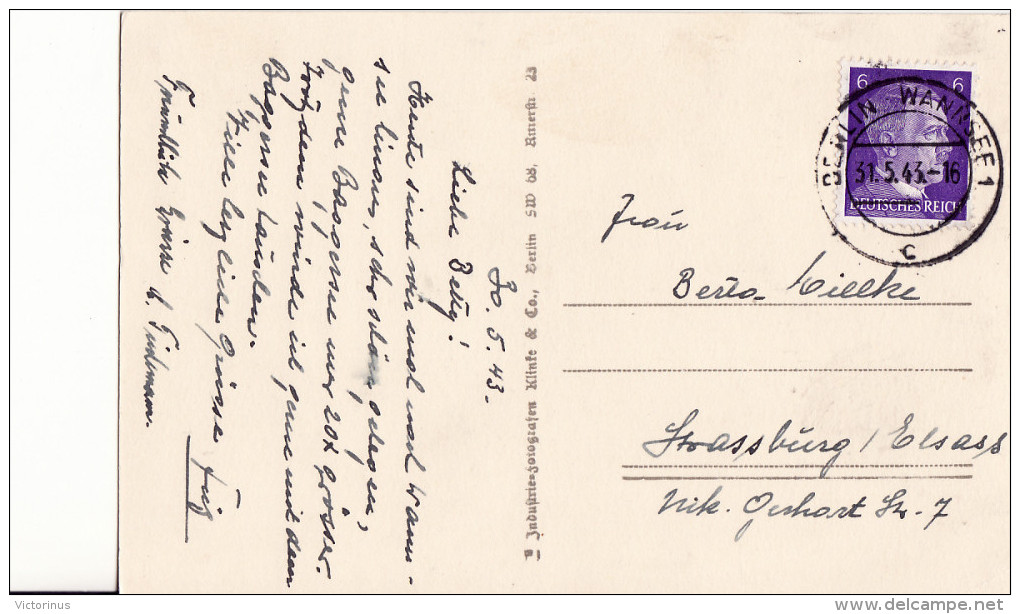 30.5.43.
Liebe Betty!
Heute sind wir mal nach Wann-
see hinaus, schön gelegen,
genau Baggersee nur 20x grösser.
Trotzdem würde ich gerne mit dem
Baggersee tauschen.
Vielen herzliche Grüsse
Freundliche Grüsse
Industrie-Fotografen Klinke & Co., Berlin SW 68, 23
6 6
DEUTSCHES REICH
BERLIN WANNSEE 1
31.5.43.-16
c
Frau
Berta Mielke
Strassburg / Elsass
Nik. Gerhart Str. 7
Victorinus
delcampe.net